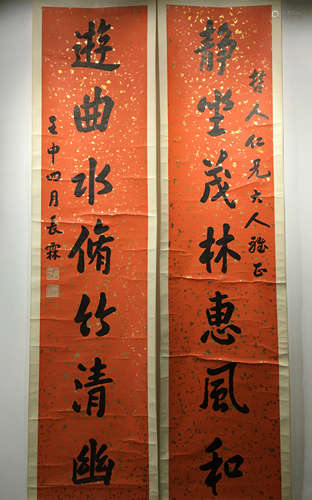 静坐茂林惠风和
哲人仁兄大人雅正
遊曲水脩竹清幽
壬申四月長霖